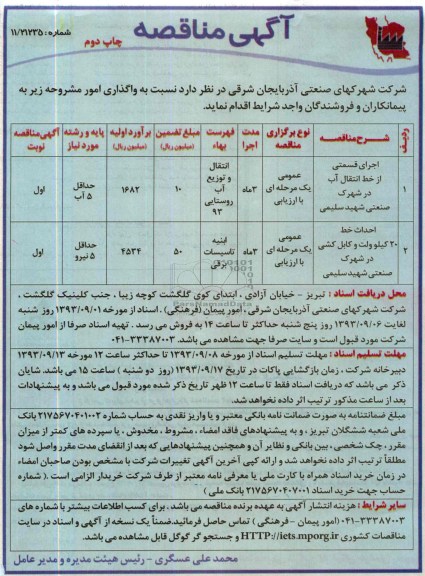 آگهی مناقصه
چاپ دوم
شماره: ۱۱/۲۱۲۳۵
شرکت شهرکهای صنعتی آذربایجان شرقی در نظر دارد نسبت به واگذاری امور مشروحه زیر به
پیمانکاران و فروشندگان واجد شرایط اقدام نماید.
ردیف | شرح مناقصه | نوع برگزاری مناقصه | مدت اجرا | فهرست بهاء | مبلغ تضمین (میلیون ریال) | برآورد اولیه (میلیون ریال) | پایه و رشته مورد نیاز | آگهی مناقصه نوبت
۱ | اجرای قسمتی از خط انتقال آب در شهرک صنعتی شهید سلیمی | عمومی یک مرحله ای با ارزیابی | ۳ماه | انتقال و توزیع آب روستایی ۹۳ | ۱۰ | ۱۶۸۲ | حداقل ۵ آب | اول
۲ | احداث خط ۲۰ کیلو ولت و کابل کشی در شهرک صنعتی شهید سلیمی | عمومی یک مرحله ای با ارزیابی | ۳ماه | ابنیه تاسیسات برقی | ۵۰ | ۴۵۳۴ | حداقل ۵ نیرو | اول
محل دریافت اسناد : تبریز - خیابان آزادی ، ابتدای کوی گلگشت کوچه زیبا ، جنب کلینیک گلگشت ،
شرکت شهرکهای صنعتی آذربایجان شرقی ، امور پیمان (فرهنگی) . اسناد از مورخه ۱۳۹۳/۰۹/۰۱ روز شنبه
لغایت ۱۳۹۳/۰۹/۰۶ روز پنج شنبه حداکثر تا ساعت ۱۴ به فروش می رسد . تهیه اسناد صرفا از امور پیمان
شرکت مورد قبول است و سایت صرفا جهت مشاهده می باشد. ۳۳۳۸۷۰۰۳-۰۴۱
مهلت تسلیم اسناد : مهلت تسلیم اسناد از مورخه ۱۳۹۳/۰۹/۰۸ تا حداکثر ساعت ۱۲ مورخه ۱۳۹۳/۰۹/۱۳
دبیرخانه شرکت ، زمان بازگشایی پاکات در تاریخ ۱۳۹۳/۰۹/۱۷ (روز دو شنبه ) ساعت ۱۵ می باشد. شایان
ذکر می باشد که دریافت اسناد فقط تا ساعت ۱۲ ظهر تاریخ ذکر شده مورد قبول می باشد و به پیشنهادات
بعد از ساعت مذکور ترتیب اثر داده نخواهد شد.
مبلغ ضمانتنامه به صورت ضمانت نامه بانکی معتبر و یا واریز نقدی به حساب شماره ۲۱۷۵۶۷۰۴۰۱۰۰۲ بانک
ملی شعبه ششگلان تبریز ، و به پیشنهادهای فاقد امضاء ، مشروط ، مخدوش ، یا سپرده های کمتر از میزان
مقرر ، چک شخصی ، بین بانکی و نظایر آن و همچنین پیشنهادهایی که بعد از انقضای مدت مقرر واصل شود
مطلقاً ترتیب اثر داده نخواهد شد و ارائه کپی آخرین آگهی تغییرات شرکت با مشخص بودن صاحبان امضاء
در زمان خرید اسناد همراه با کارت ملی یا معرفی نامه معتبر از طرف شرکت خریدار الزامی است . ( شماره
حساب جهت خرید اسناد ۲۱۷۵۶۷۰۴۰۷۰۰۱ بانک ملی )
سایر شرایط : هزینه انتشار آگهی به عهده برنده مناقصه می باشد . برای کسب اطلاعات بیشتر با شماره های
۳۳۳۸۷۰۰۳-۰۴۱ (امور پیمان - فرهنگی ) تماس حاصل فرمائید.ضمناً یک نسخه از آگهی و اسناد در سایت
مناقصات کشوری HTTP://iets.mporg.ir و جستجو گر گوگل قابل مشاهده می باشد.
محمد علی عسگری - رئیس هیئت مدیره و مدیر عامل